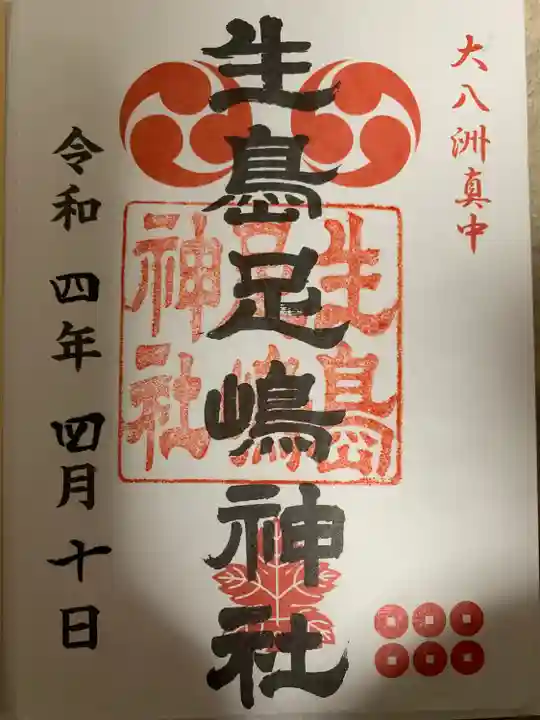 大八洲真中
生島足嶋神社
生島
足嶋
神社
令和 四年 四月 十日